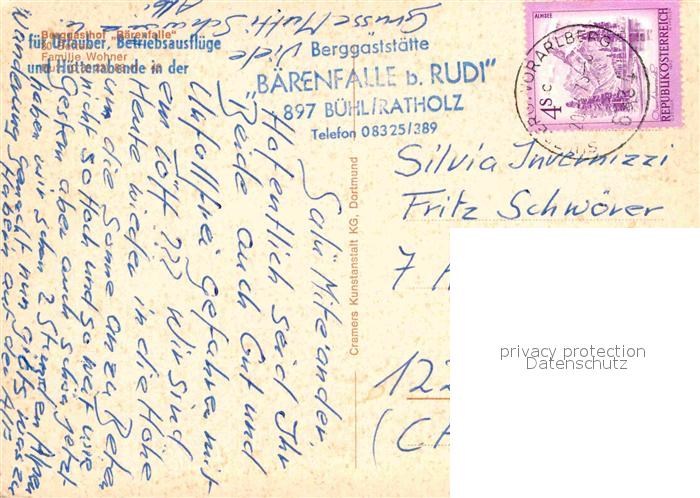 Berggasthof „Bärenfalle"
Familie Wohner
für Urlauber, Betriebsausflüge
und Hüttenabende in der
Berggaststätte
„BÄRENFALLE b. RUDI"
897 BÜHL/RATHOLZ
Telefon 08325/389
ALMSEE
4 S
REPUBLIK ÖSTERREICH
VORARLBERG
Cramers Kunstanstalt KG, Dortmund
Silvia Invernizzi
Fritz Schwörer
7 A
122
(CH
privacy protection
Datenschutz
Salü Miteinander,
Hofentlich seid Ihr
Beide auch Gut und
Unfollfrei Gefahren mit
em Töff??? Wir sind
Heute wieder in die Höhe
um die Sonne an zu Beten
nicht so Hoch und so weit wie
Gestern aber auch schön jetzt
haben wir schon 2 Stunden
Wanderung Gemacht nun gibt's was zu
Haben auf der Alp
Viele
Grüsse Mutti